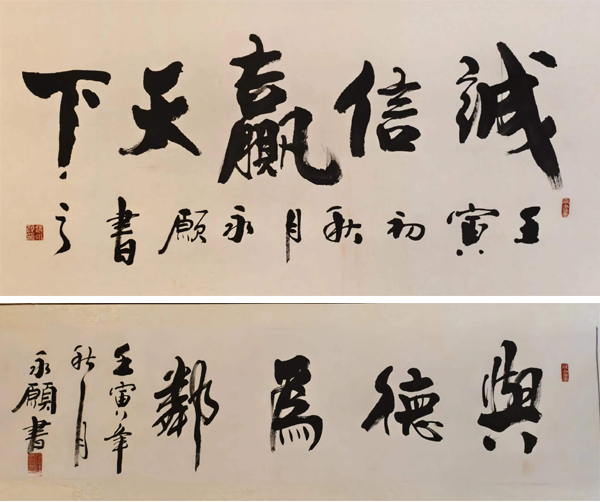 誠信贏天下
壬寅初秋月永願書之
與德為鄰
壬寅年
秋月
永願書